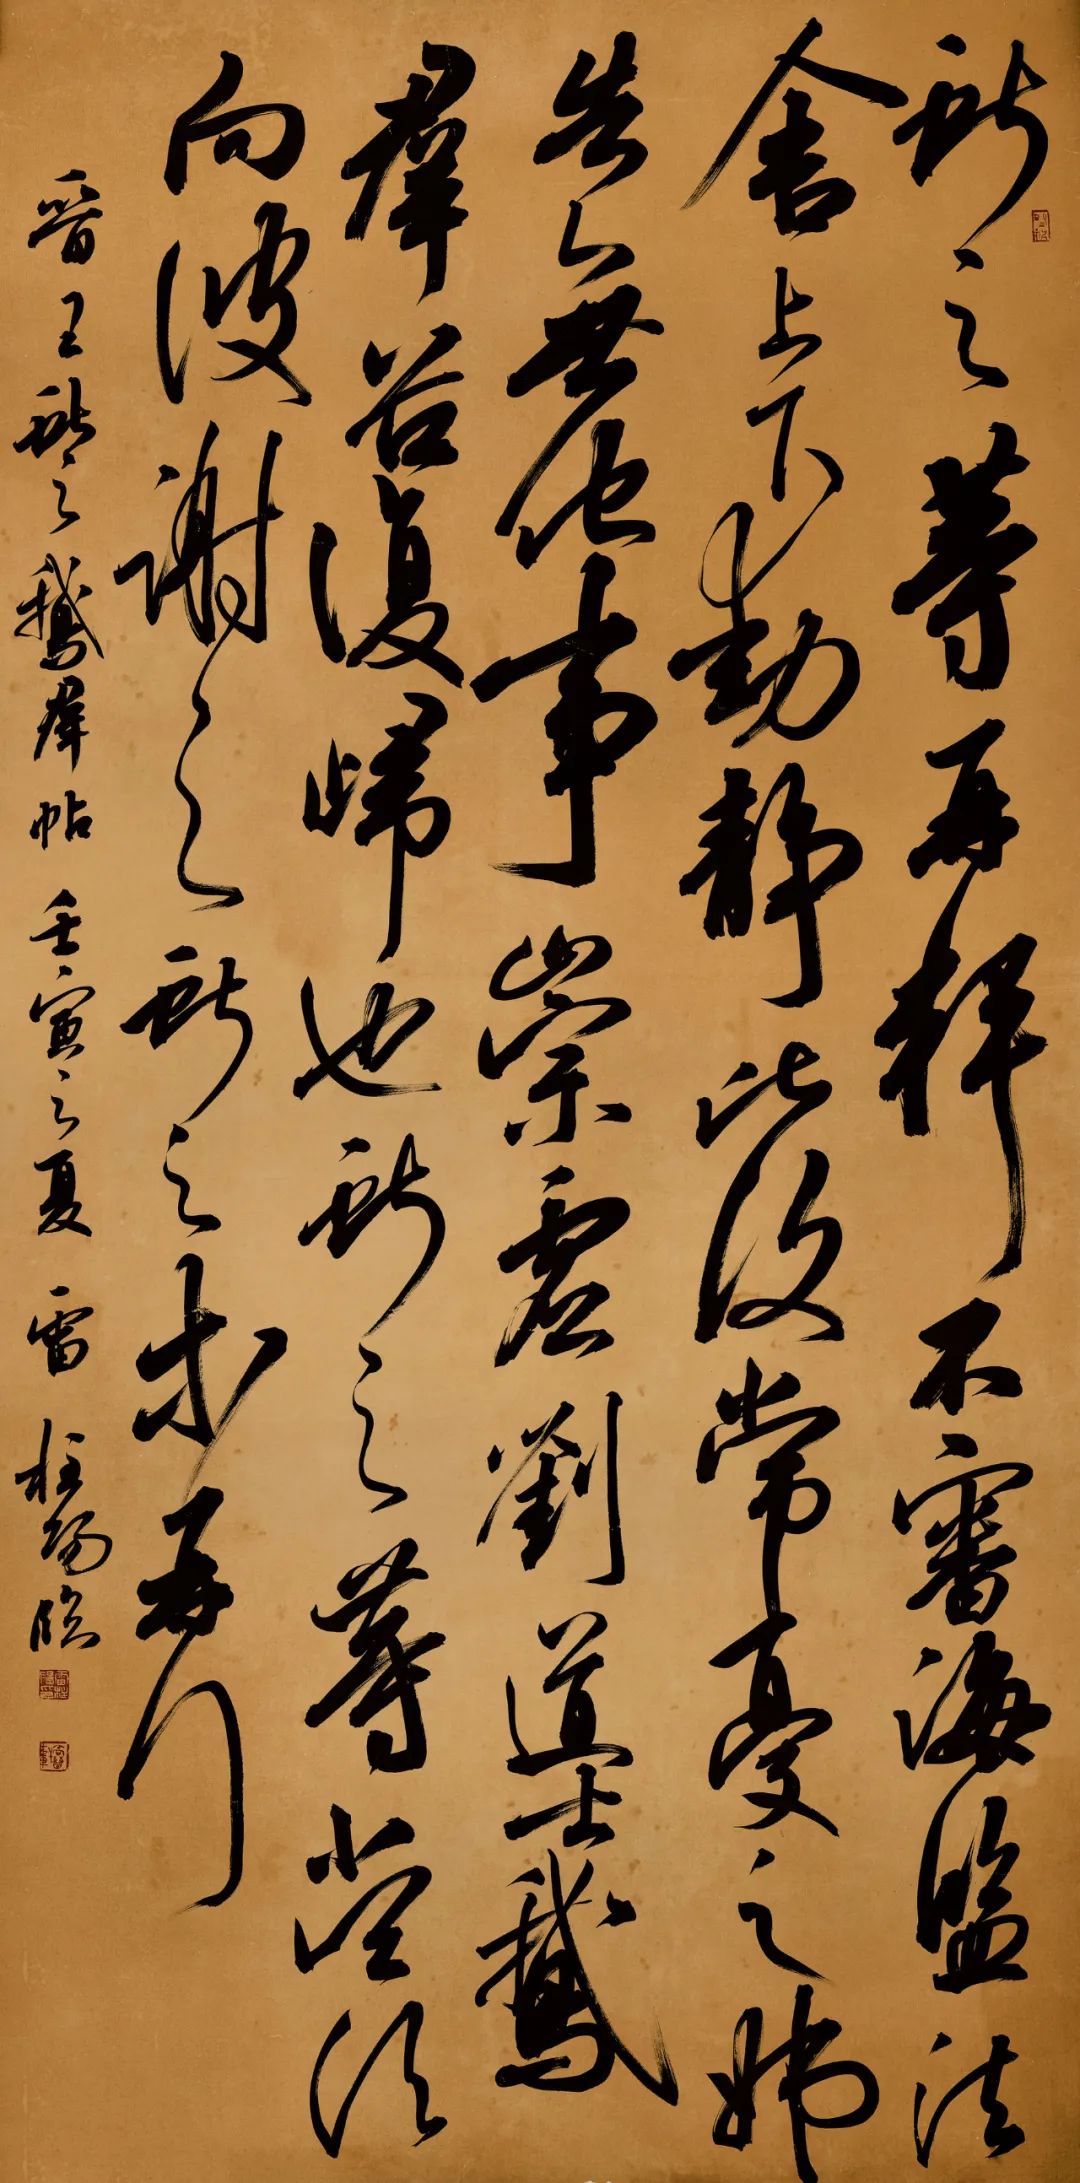 獻之等再拜不審海鹽諸
舍上下動靜比復常憂之姊
告無他事崇虛劉道士鵝
羣並復歸也獻之等當須
向彼謝之獻之等再拜
晉王獻之鵝羣帖 壬寅之夏 雷 陽臨